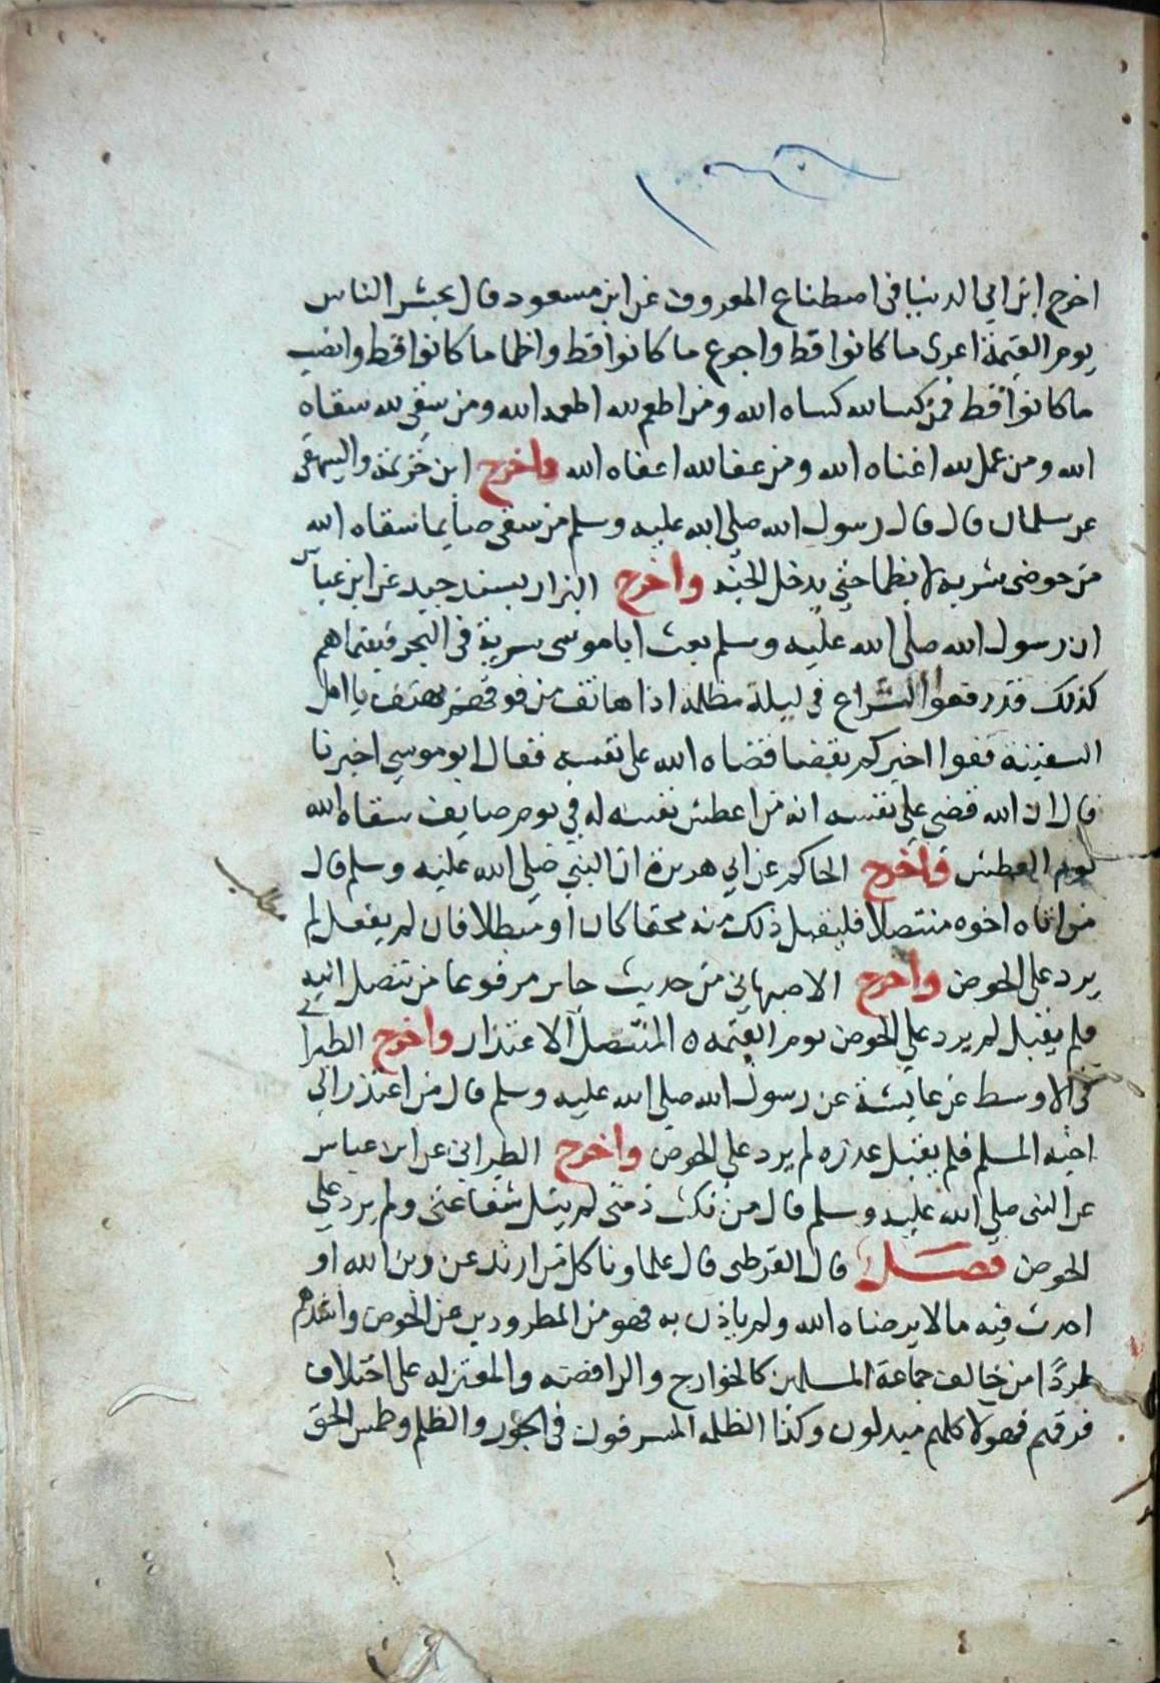 اخرج ابن ابي الدنيا في اصطناع المعروف عن ابن مسعود قال يحشر الناس
يوم القيمة اعرى ما كانوا قط واجوع ما كانوا قط واظما ما كانوا قط وانصب
ما كانوا قط فمن كسا لله كساه الله ومن اطعم لله اطعمه الله ومن سقى لله سقاه
الله ومن عمل لله اغناه الله ومن عفا لله اعفاه الله واخرج ابن خزيمة والبيهقي
عن سلمان قال قال رسول الله صلى الله عليه وسلم من سقى صايما سقاه الله
من حوضى شربة لا يظما حتى يدخل الجنة واخرج البزار بسند جيد عن ابن عباس
ان رسول الله صلى الله عليه وسلم بعث ابا موسى سرية في البحر فبينما هم
كذلك قد رفعوا الشراع في ليلة مظلمة اذا هاتف من فوقهم يهتف يا اهل
السفينة قفوا اخبركم بقضا قضاه الله على نفسه فقال ابو موسى اخبرنا
قال ان الله قضى على نفسه انه من اعطش نفسه له في يوم صايف سقاه الله
يوم العطش واخرج الحاكم عن ابي هريرة ان النبي صلى الله عليه وسلم قال
من اتاه اخوه متنصلا فليقبل ذلك منه محقا كان او مبطلا فان لم يفعل لم
يرد على الحوض واخرج الاصبهاني من حديث جابر مرفوعا من تنصل اليه
فلم يقبل لم يرد علي الحوض يوم القيمة ه المتنصل الاعتذار واخرج الطبراني
في الاوسط عن عايشة عن رسول الله صلى الله عليه وسلم قال من اعتذر الى
اخيه المسلم فلم يقبل عذره لم يرد علي الحوض واخرج الطبراني عن ابن عباس
عن النبى صلى الله عليه وسلم قال من نكث ذمتى لم ينل شفاعتى ولم يرد على
الحوض فصل قال القرطبى قال علماونا كل من ارتد عن دين الله او
احدث فيه ما لا يرضاه الله ولم ياذن به فهو من المطرودين عن الحوض واشدهم
طردًا من خالف جماعة المسلمين كالخوارج والرافضه والمعتزله على اختلاف
فرقهم فهولا كلهم مبدلون وكذا الظلمه المسرفون في الجور والظلم وطمس الحق